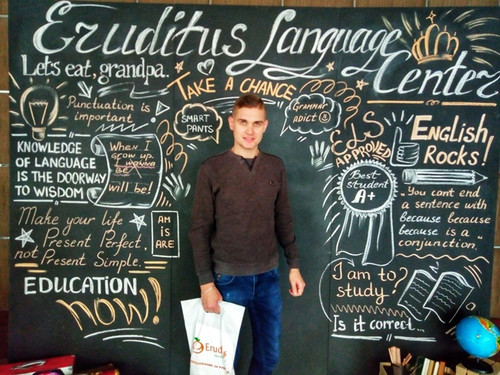 Eruditus Language
Center
Let's eat, grandpa.
Punctuation is
important
KNOWLEDGE
OF LANGUAGE
IS THE DOORWAY
TO WISDOM
When I
grow up,
I wanna
be
will be!
Make your life
Present Perfect,
not Present Simple.
AM
IS
ARE
EDUCATION
NOW!
TAKE A CHANCE
SMART
PANTS
Grammar
adict
ELS
APPROVED
Best
student
A+
English
Rocks!
You cant end
a sentence with
because because
because is a
conjunction.
I am to
study?
Is it correct...
Erud